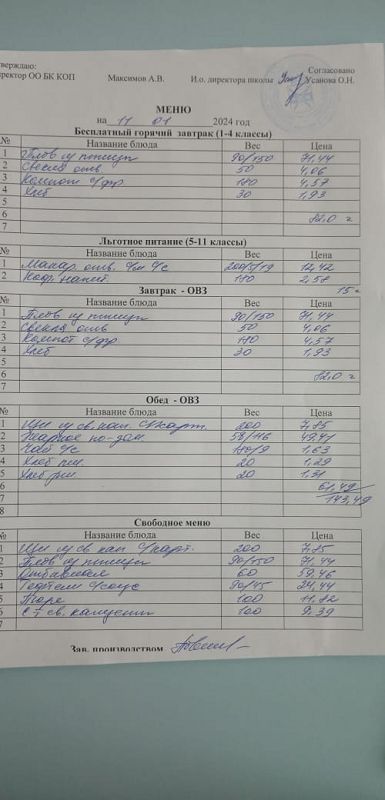 тверждаю:
ректор ОО БК КОП Максимов А.В. И.о. директора школы Усанова О.Н.
Согласовано
МЕНЮ
на 11 01 2024 год
Бесплатный горячий завтрак (1-4 классы)
№ Название блюда Вес Цена
1 Плов из птицы 90/150 71,44
2 Свекла отв. 50 4,06
3 Компот с/фр 180 4,57
4 Хлеб 30 1,93
5
6 82.0
7
Льготное питание (5-11 классы)
№ Название блюда Вес Цена
1 Макар. отв. 12,42
2 Коф. напит. 180 2,58
Завтрак - ОВЗ 15
№ Название блюда Вес Цена
1 Плов из птицы 90/150 71,44
2 Свекла отв 50 4,06
3 Компот с/фр 180 4,57
4 Хлеб 30 1,93
5
6 82.0
7
Обед - ОВЗ
№ Название блюда Вес Цена
1 Щи из св. кап. с/карт. 200 7,85
2 Жаркое по-дом.
3 Чай с/с 180/9 1,63
4 Хлеб пш. 20 1,29
5 Хлеб рж. 20 1,31
6 61,49
7 143,49
8
Свободное меню
№ Название блюда Вес Цена
1 Щи из св кап с/карт. 200 7,85
2 Плов из птицы 90/150 71,44
3 Отбивная 60 59,46
4 Тефтели с/соус 90/45 24,44
5 Пюре 100 11,82
6 С-т св. капусты 100 9.39
7
Зав. производством